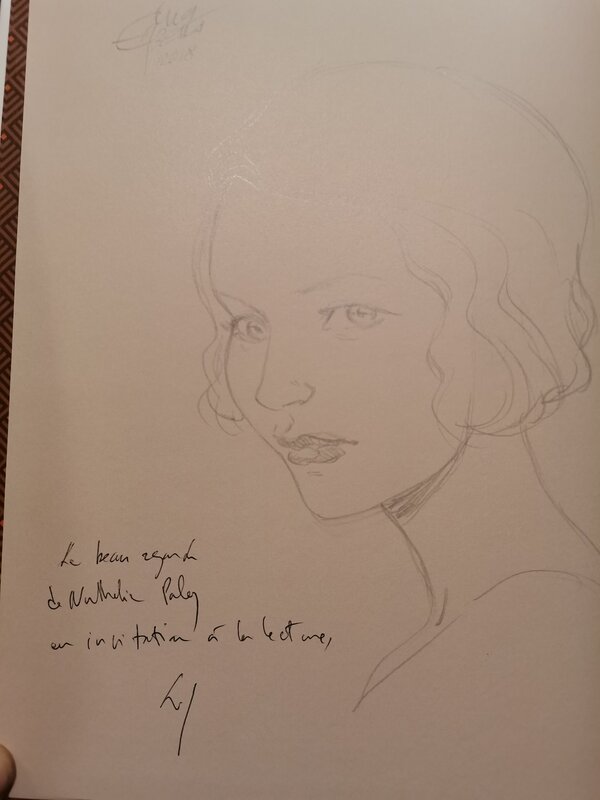 Le beau regard
de Nathalie Paley
en invitation à la lecture,